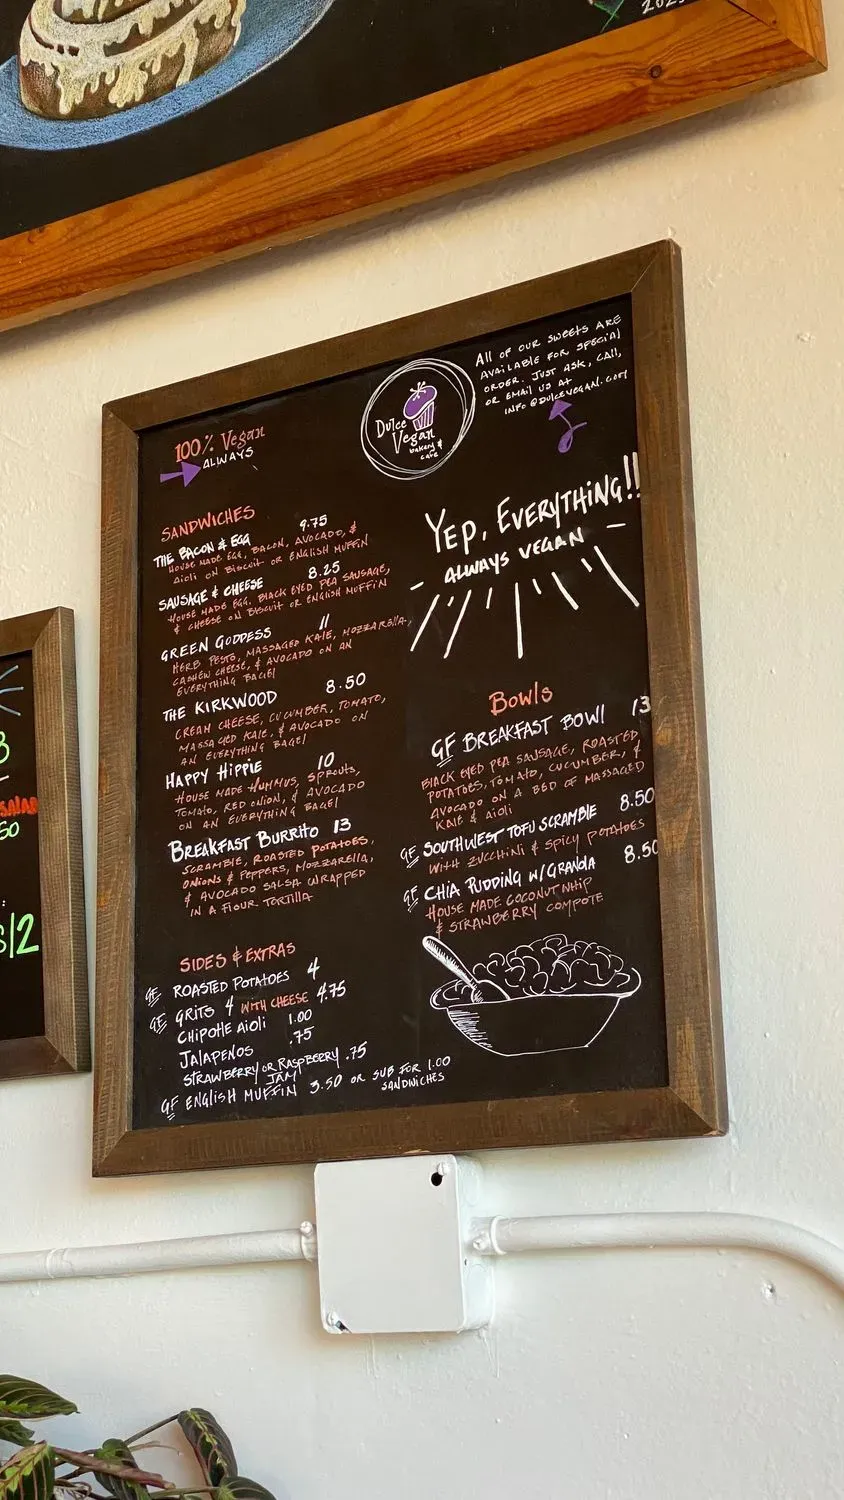 2023
100% Vegan
ALWAYS
Dulce
Vegan
bakery &
cafe
All OF OUR SWEETS ARE
AVAILABLE FOR SPECIAL
ORDER. JUST ASK, CALL,
OR EMAIL US AT
INFO@DULCEVEGAN.COM
YEP, EVERYTHING!!
ALWAYS VEGAN
SANDWICHES
THE BACON & EGG 9.75
HOUSE MADE EGG, BACON, AVOCADO, &
AIOLI ON BISCUIT OR ENGLISH MUFFIN
SAUSAGE & CHEESE 8.25
HOUSE MADE EGG, BLACK EYED PEA SAUSAGE,
& CHEESE ON BISCUIT OR ENGLISH MUFFIN
GREEN GODDESS 11
HERB PESTO, MASSAGED KALE, MOZZARELLA,
CASHEW CHEESE, & AVOCADO ON AN
EVERYTHING BAGEL
THE KIRKWOOD 8.50
CREAM CHEESE, CUCUMBER, TOMATO,
MASSAGED KALE, & AVOCADO ON
AN EVERYTHING BAGEL
HAPPY HIPPIE 10
HOUSE MADE HUMMUS, SPROUTS,
TOMATO, RED ONION, & AVOCADO
ON AN EVERYTHING BAGEL
BREAKFAST BURRITO 13
SCRAMBLE, ROASTED POTATOES,
ONIONS & PEPPERS, MOZZARELLA,
& AVOCADO SALSA WRAPPED
IN A FLOUR TORTILLA
SIDES & EXTRAS
GF ROASTED POTATOES 4
GF GRITS 4 WITH CHEESE 4.75
CHIPOTLE AIOLI 1.00
JALAPENOS .75
STRAWBERRY OR RASPBERRY .75
JAM
GF ENGLISH MUFFIN 3.50 OR SUB FOR 1.00
SANDWICHES
Bowls
GF BREAKFAST BOWL 13
BLACK EYED PEA SAUSAGE, ROASTED
POTATOES, TOMATO, CUCUMBER, &
AVOCADO ON A BED OF MASSAGED
KALE & AIOLI
GF SOUTHWEST TOFU SCRAMBLE 8.50
WITH ZUCCHINI & SPICY POTATOES
GF CHIA PUDDING W/GRANOLA 8.50
HOUSE MADE COCONUT WHIP
& STRAWBERRY COMPOTE